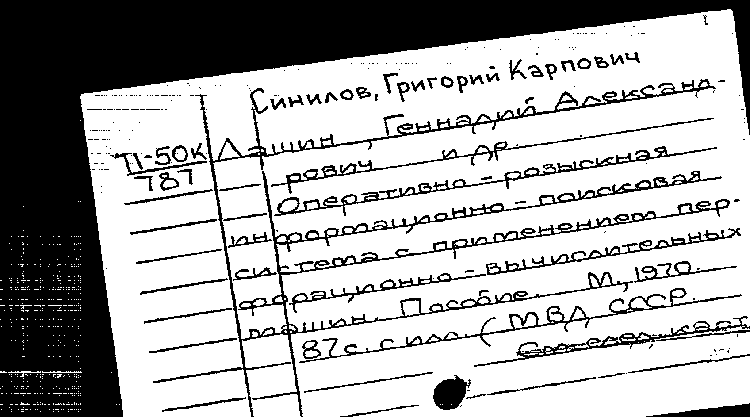 Синилов, Григорий Карпович
П-50к Лашин, Геннадий Александ-
787 рович и др.
Оперативно-розыскная
информационно-поисковая
система с применением пер-
форационно-вычислительных
машин. Пособие. М., 1970.
87 с. с илл. (МВД СССР.
См. след. карт.